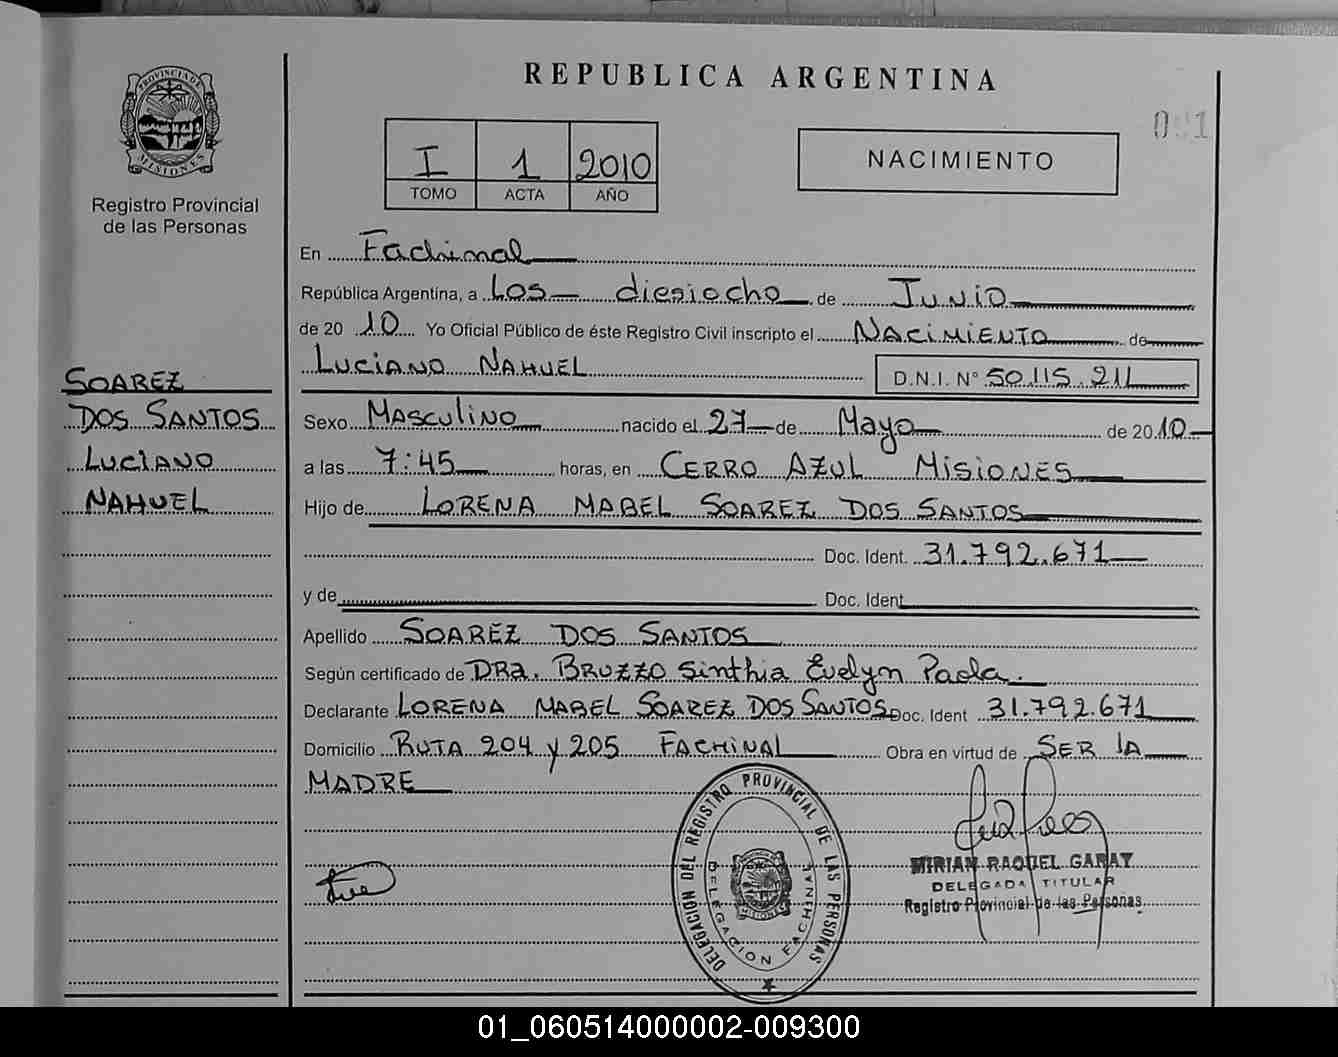 REPUBLICA ARGENTINA
PROVINCIA DE
MISIONES
Registro Provincial
de las Personas
I 1 2010
TOMO ACTA AÑO
NACIMIENTO
En Fachinal
República Argentina, a Los diesiocho de Junio
de 2010 Yo Oficial Público de éste Registro Civil inscripto el NACIMIENTO de
LUCIANO NAHUEL D.N.I. N° 50.115.211
SOAREZ
DOS SANTOS
LUCIANO
NAHUEL
Sexo MASCULINO nacido el 27 de Mayo de 2010
a las 7:45 horas, en CERRO AZUL MISIONES
Hijo de LORENA MABEL SOAREZ DOS SANTOS
Doc. Ident. 31.792.671
y de Doc. Ident
Apellido SOAREZ DOS SANTOS
Según certificado de DRa. BRUZZO Sinthia Evelyn Paola.
Declarante LORENA MABEL SOAREZ DOS SANTOS Doc. Ident 31.792.671
Domicilio RUTA 204 y 205 FACHINAL Obra en virtud de SER lA
MADRE
DELEGACION DEL REGISTRO PROVINCIAL DE LAS PERSONAS
DELEGACION FACHINAL
MISIONES
MIRIAN RAQUEL GARAY
DELEGADA TITULAR
Registro Provincial de las Personas
01_060514000002-009300